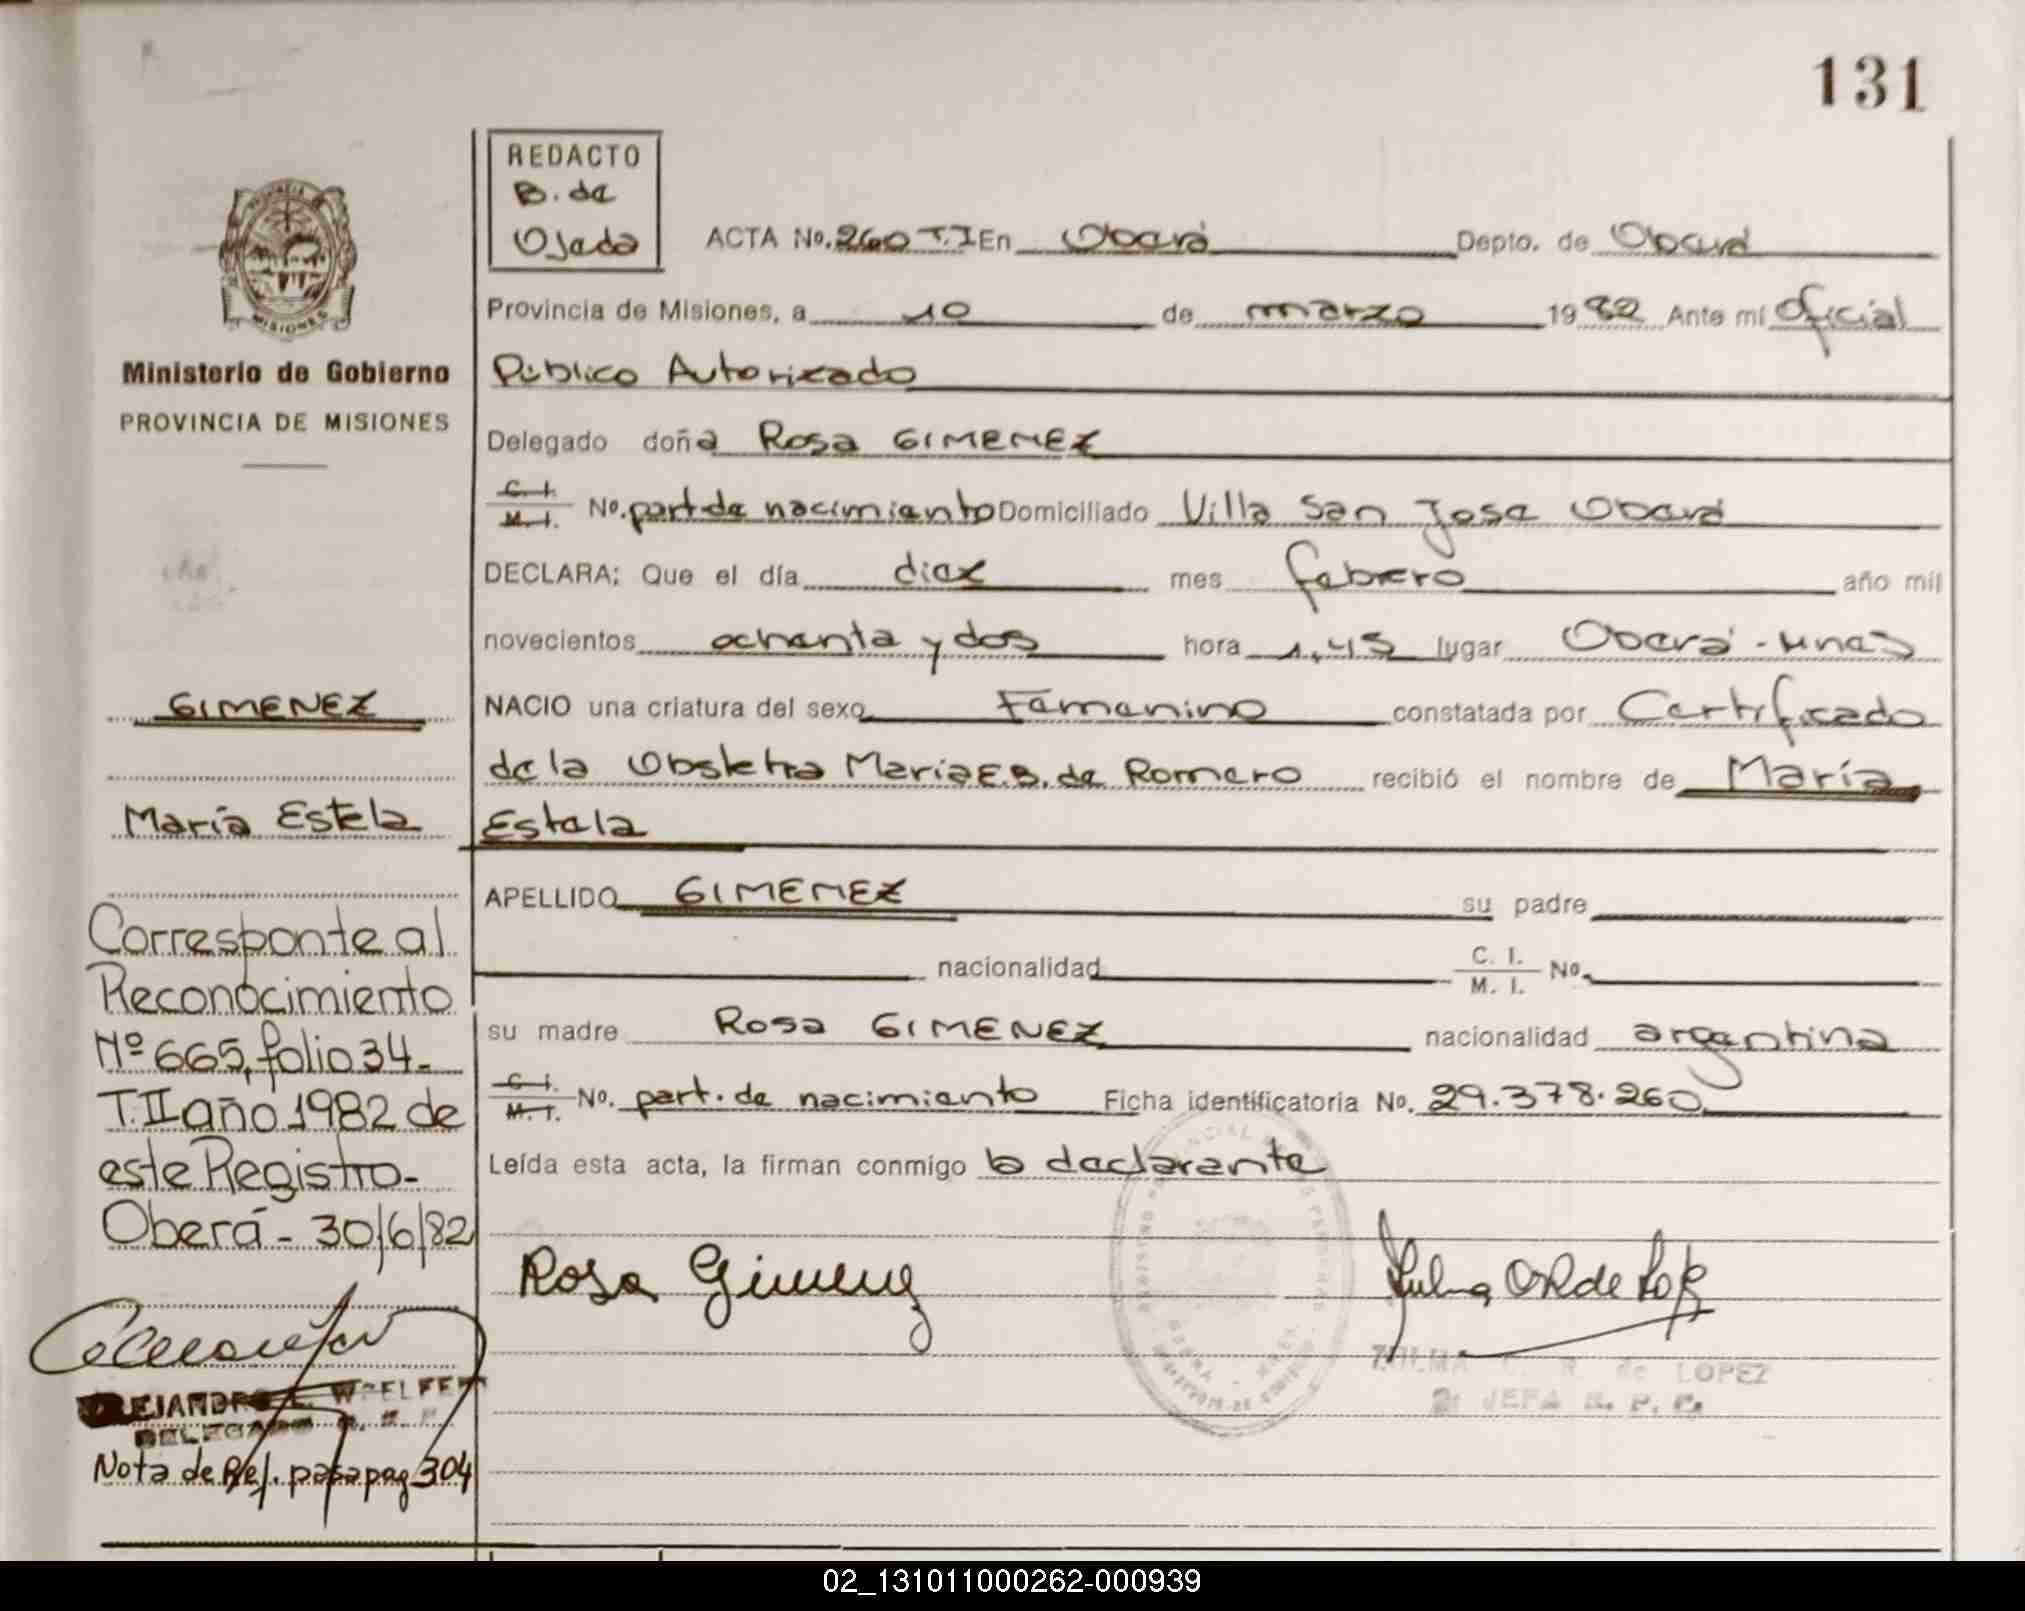 131
REDACTO
B. de
Ojeda
ACTA No. 260 T.I En Oberá Depto. de Oberá
Provincia de Misiones, a 10 de marzo 1982 Ante mí Oficial
Ministerio de Gobierno
PROVINCIA DE MISIONES
Público Autorizado
Delegado doña Rosa GIMENEZ
C. I. M. I. No. part. de nacimiento Domiciliado Villa San Jose Oberá
DECLARA: Que el día diez mes febrero año mil
novecientos ochenta y dos hora 1,45 lugar Oberá - Mnes
NACIO una criatura del sexo Femenino constatada por Certificado
de la Obstetra María E.B. de Romero recibió el nombre de María
Estela
APELLIDO GIMENEZ su padre
nacionalidad C. I. M. I. No.
su madre Rosa GIMENEZ nacionalidad argentina
C. I. M. I. No. part. de nacimiento Ficha identificatoria No. 29.378.260
Leída esta acta, la firman conmigo la declarante
Rosa Gimenez
de LOPEZ
JEFA R. P. P.
GIMENEZ
María Estela
Corresponte al
Reconocimiento
Nº 665, folio 34-
T.II año 1982 de
este Registro-
Oberá - 30/6/82
DELEGADO
Nota de Ref. pasa pag 304
02_131011000262-000939